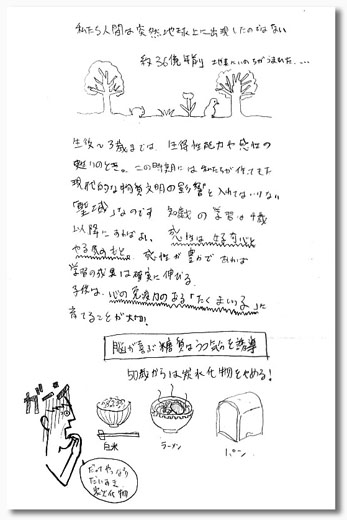 私たち人間は突然地球上に出現したのではない
約36億年前 地球にいのちがうまれた....
生後〜3歳までは、生得性能力や感性の
この時期には私たちが作ってきた
現代的な物質文明の影響を入れてはいけない
「聖域」なのです 知識の学習は4歳
以降にすればよい、感性は好奇心と
やる気のもと。感性が豊かであれば
学習の成果は確実に伸びる。
子供は、心の免疫力のある「たくましい子」に
育てることが大切!
脳が喜ぶ糖質はうつ気分を誘導
50歳からは炭水化物をやめる!
ガーン
白米
ラーメン
パン
だってやっぱり
だいすき
炭水化物